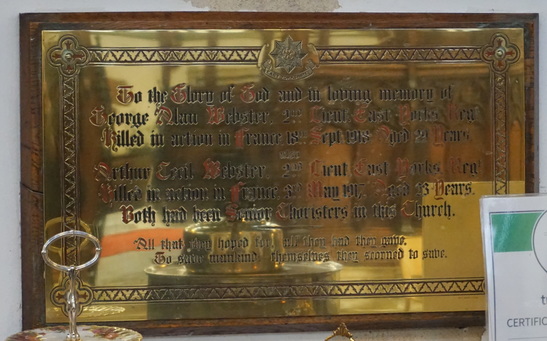 To the Glory of God and in loving memory of
George Alan Webster, 2nd Lieut. East Yorks Regt
Killed in action in France 18th Sept 1918 Aged 24 Years.
Arthur Cecil Webster, 2nd Lieut East Yorks Regt
Killed in action in France 3rd May 1917, Aged 23 Years.
Both had been Senior Choristers in this Church.
All that they hoped for, all they had they gave,
To save mankind, themselves they scorned to save.
CERTIFIC